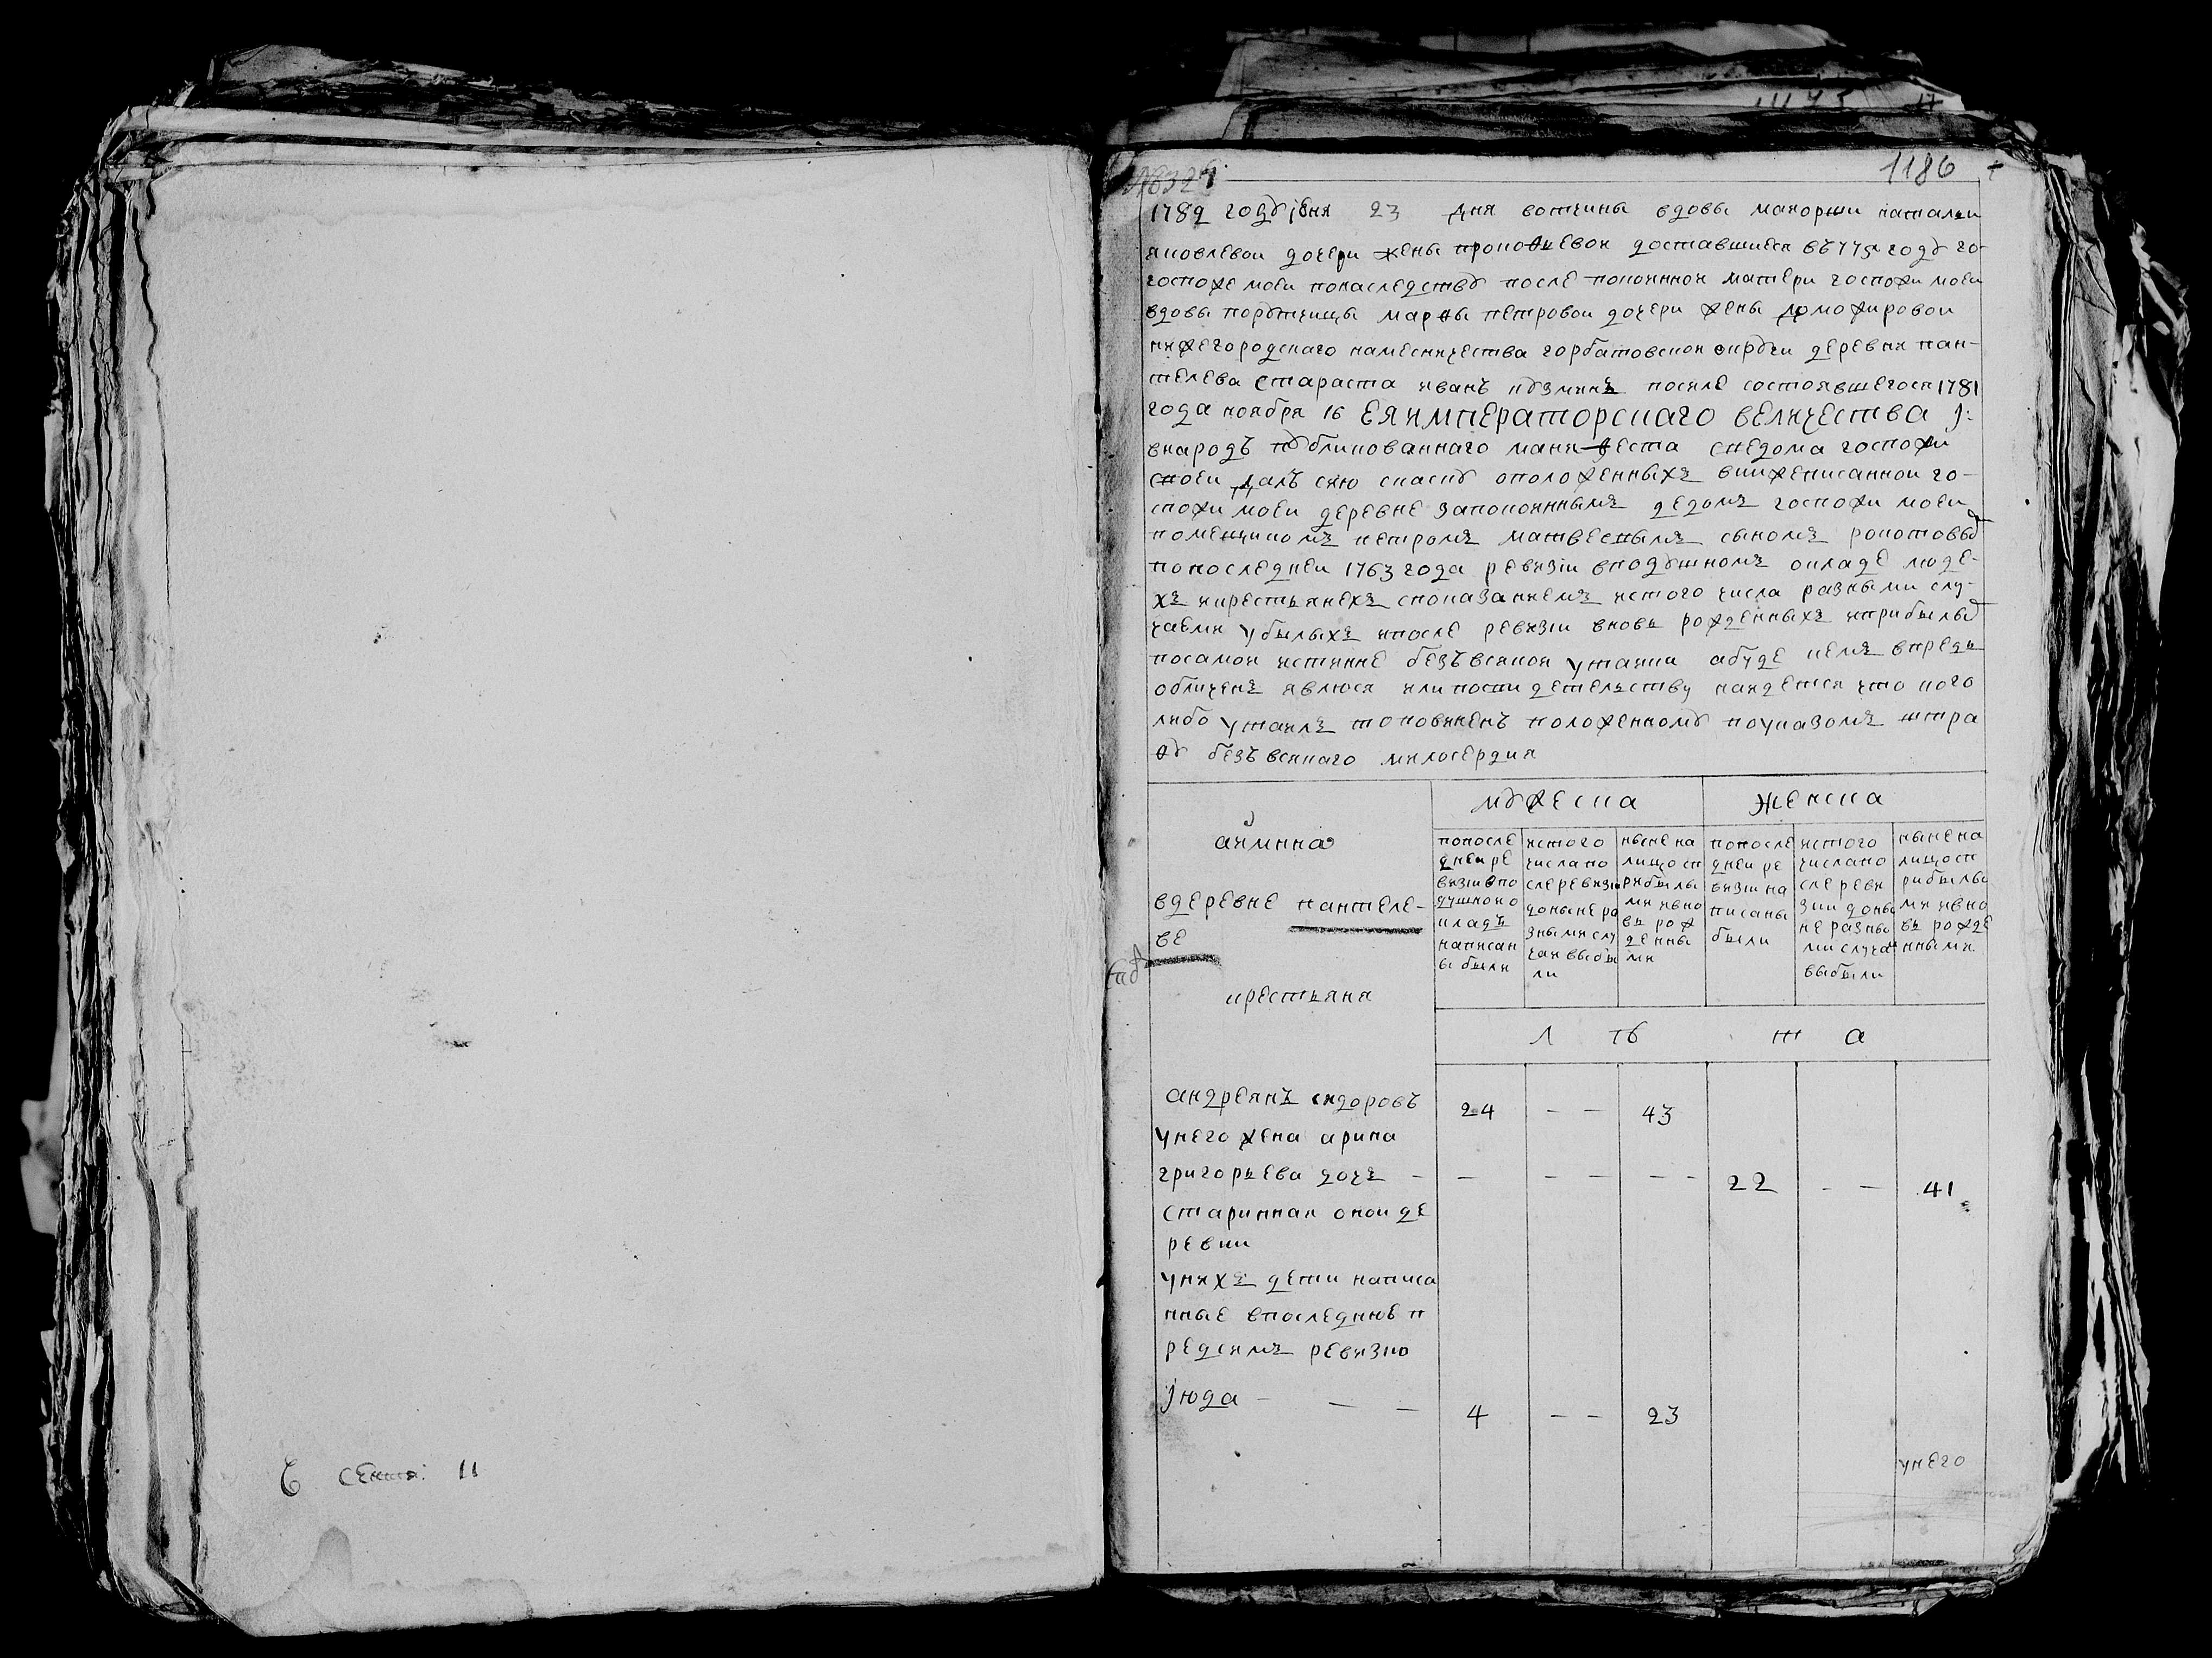 1186
1782 году июня 23 дня вотчины вдовы маиорши натальи
яковлевои дочери жены прокофьевои доставшиеся въ 775 году го-
госпоже моеи понаследству после покоинои матери госпожи моеи
вдовы порутчицы марфы петровои дочери жены доможировои
нижегородскаго намесничества горбатовскои округи деревни пан-
телева староста иванъ кузминъ после состоявшегося 1781
года ноября 16 ея императорскаго величества
внародъ публикованнаго манифеста сведома госпожи
своеи далъ сию скаску оположенныхъ вышеписаннои го-
спожи моеи деревне запокоинымъ дедомъ госпожи моеи
помещикомъ петромъ матвеевымъ сыномъ
попоследнеи 1763 года ревизии вподушномъ окладе люде-
хъ икрестьянехъ споказаниемъ истого числа разными слу-
чаеми убылыхъ ипосле ревизии вновь рожденныхъ иприбылых
посамои истинне безъ всякои утаики абуде кемъ впредь
обличенъ явлюся или посвидетельству наидется что кого
либо утаилъ то повиненъ положенному поуказомъ штра
фу безъ всякаго милосердия
мужеска женска
аимянно
вдеревне пантеле-
ве
крестьяня
попосле днеи ре визии впо душном о кладъ написан ы были
истого числа по сле ревизии доныне ра зными слу чаи выбы ли
ныне на лицо сп рибылы ми ивно вь рож денны ми
попосле днеи ре визии на писаны были
истого числа по сле реви зии доны не разны ми случаи выбыли
ныне на лицо сп рибылы ми ивно вь рожде нными
л ѣ т а
андреянъ сидоровъ 24 - - 43
унего жена арина
григорьева дочь - - - - - - 22 - - 41
стариннаи онои де
ревни
унихъ дети написа
нные впоследнюю п
редсимъ ревизию
июда - - - 4 - - 23
унего
сентя: 11